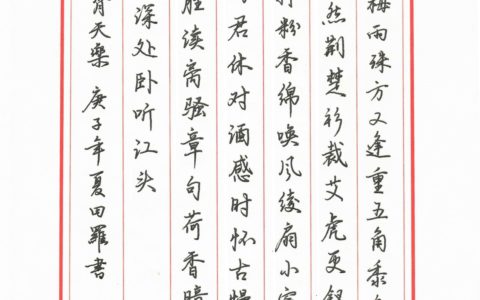 梅雨殊方又逢重五角黍
然荆楚衫裁艾虎更钗
扑粉香绵唤风绫扇小窗
君休对酒感时怀古慢
胜读离骚章句荷香暗
深处卧听江头
齐天樂 庚子年夏田羅書